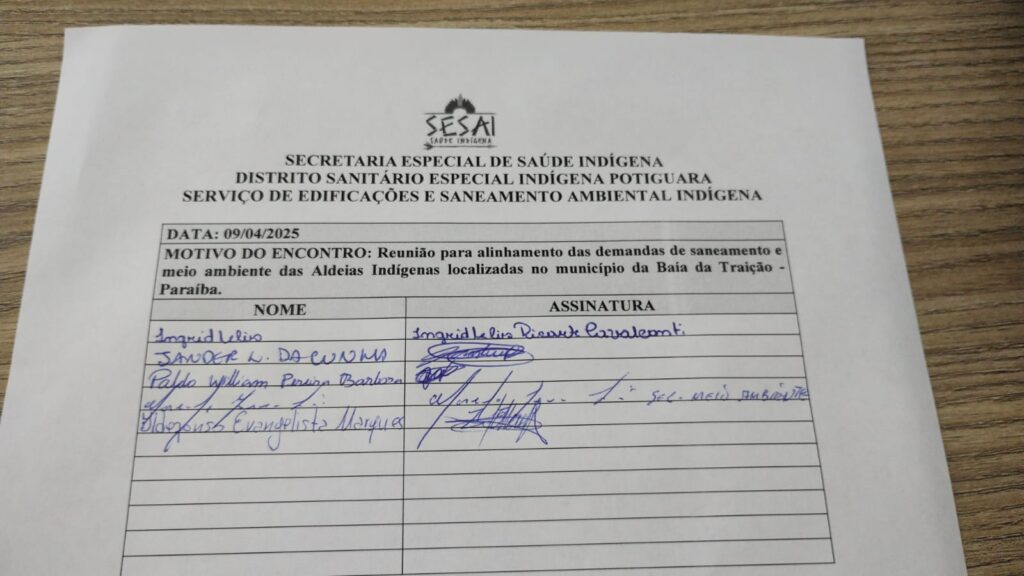 SESAI
SAÚDE INDÍGENA
SECRETARIA ESPECIAL DE SAÚDE INDÍGENA
DISTRITO SANITÁRIO ESPECIAL INDÍGENA POTIGUARA
SERVIÇO DE EDIFICAÇÕES E SANEAMENTO AMBIENTAL INDÍGENA
DATA: 09/04/2025
MOTIVO DO ENCONTRO: Reunião para alinhamento das demandas de saneamento e
meio ambiente das Aldeias Indígenas localizadas no município da Baía da Traição -
Paraíba.
NOME ASSINATURA
Ingrid Lelis Ingrid Lelis Ricarte Cavalcanti
SANDER L. DA CUNHA
Pablo William Pereira Barbosa
SEC. MEIO AMBIENTE
Ildefonso Evangelista Marques